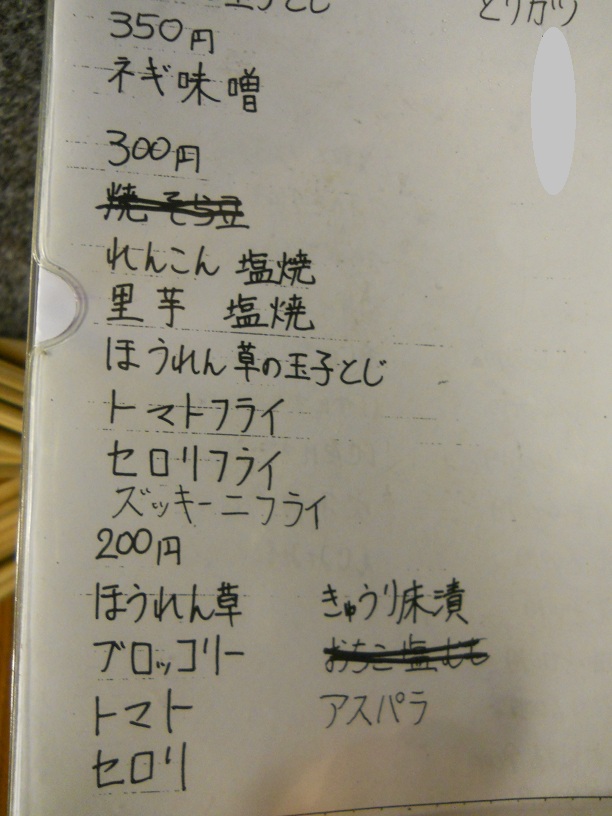 玉子とじ
とりカツ
350円
ネギ味噌
300円
焼そら豆
れんこん 塩焼
里芋 塩焼
ほうれん草の玉子とじ
トマトフライ
セロリフライ
ズッキーニフライ
200円
ほうれん草 きゅうり床漬
ブロッコリー
トマト アスパラ
セロリ